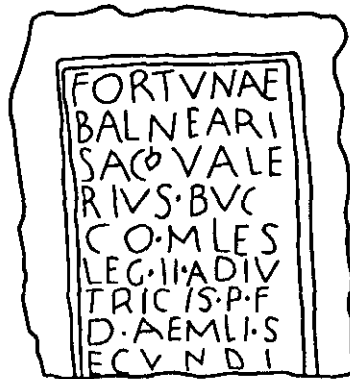 FORTVNAE
BALNEARI
SACO VALE
RIVS·BVC
CO·MLES
LEG·II·ADIV
TRICIS·P·F
D·AEMLI·S
ECVNDI